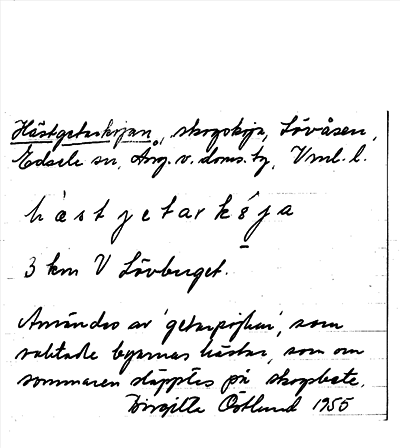 Hästgetarkojan, skogskoja, Lövåsen,
Edsele sn, Ång. v. doms. tg, Vnl. l.
hæstjetarkåja
3 km V Lövberget.
Användes av 'getarpojkar', som
vaktade byarnas hästar, som om
sommaren släpptes på skogsbete.
Birgitta Östlund 1955